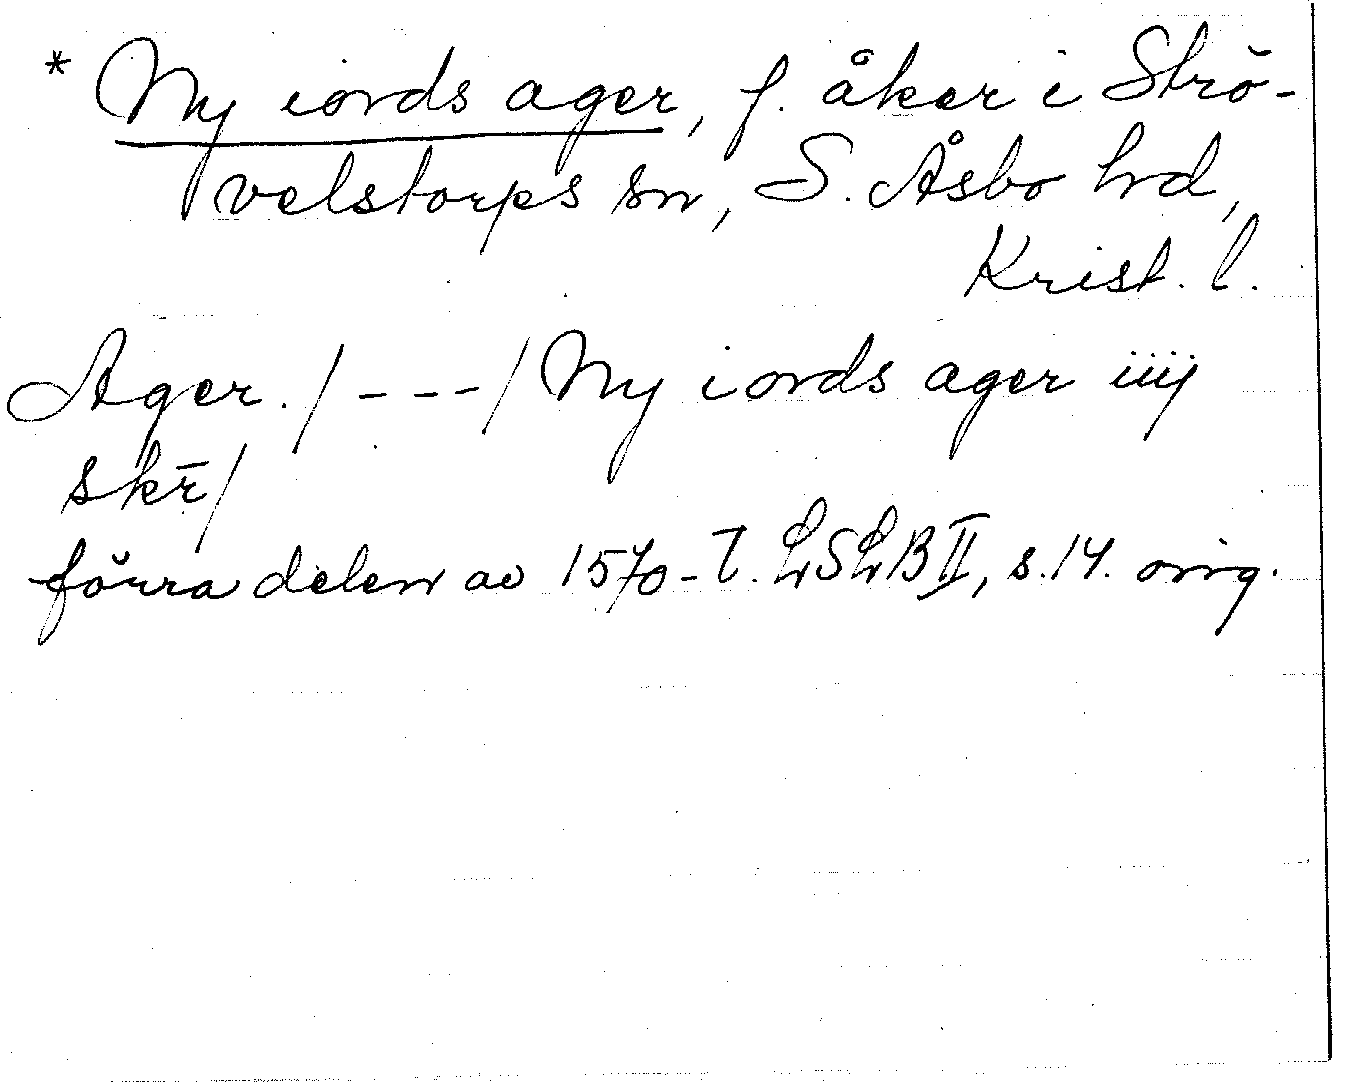 * Ny iords ager, f. åker i Strö-
velstorps sn, S. Åsbo hrd,
Krist. l.
Ager. / - - - / Ny iords ager iiij
skr̄ /
förra delen av 1570-t. LSLB II, s. 14. orig.